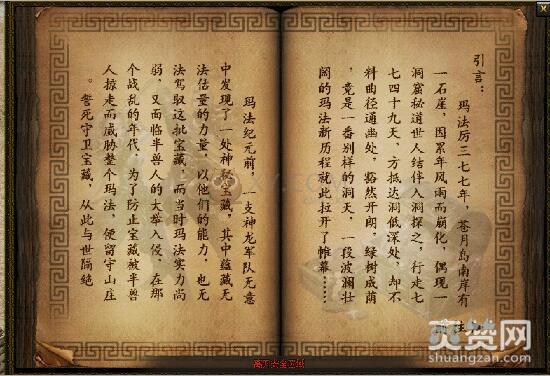 引言：
玛法厉三七七年，苍月岛南岸有
一石崖，因累年风雨而崩化，偶现一
洞窟秘道世人结伴入洞探之，行走七
七四十九天，方抵达洞低深处，却不
料曲径通幽处，豁然开朗，绿树成荫
，竟是一番别样的洞天，一段波澜壮
阔的玛法新历程就此拉开了帷幕......
玛法纪元前，一支神龙军队无意
中发现了一处神秘宝藏，其中蕴藏无
法估量的力量，以他们的能力，也无
法驾驭这批宝藏，而当时玛法实力尚
弱，又面临半兽人的大举入侵，在那
个战乱的年代，为了防止宝藏被半兽
人掠走而威胁整个玛法，便留守山庄
。誓死守卫宝藏，从此与世隔绝
爽赞网
shuangzan.com